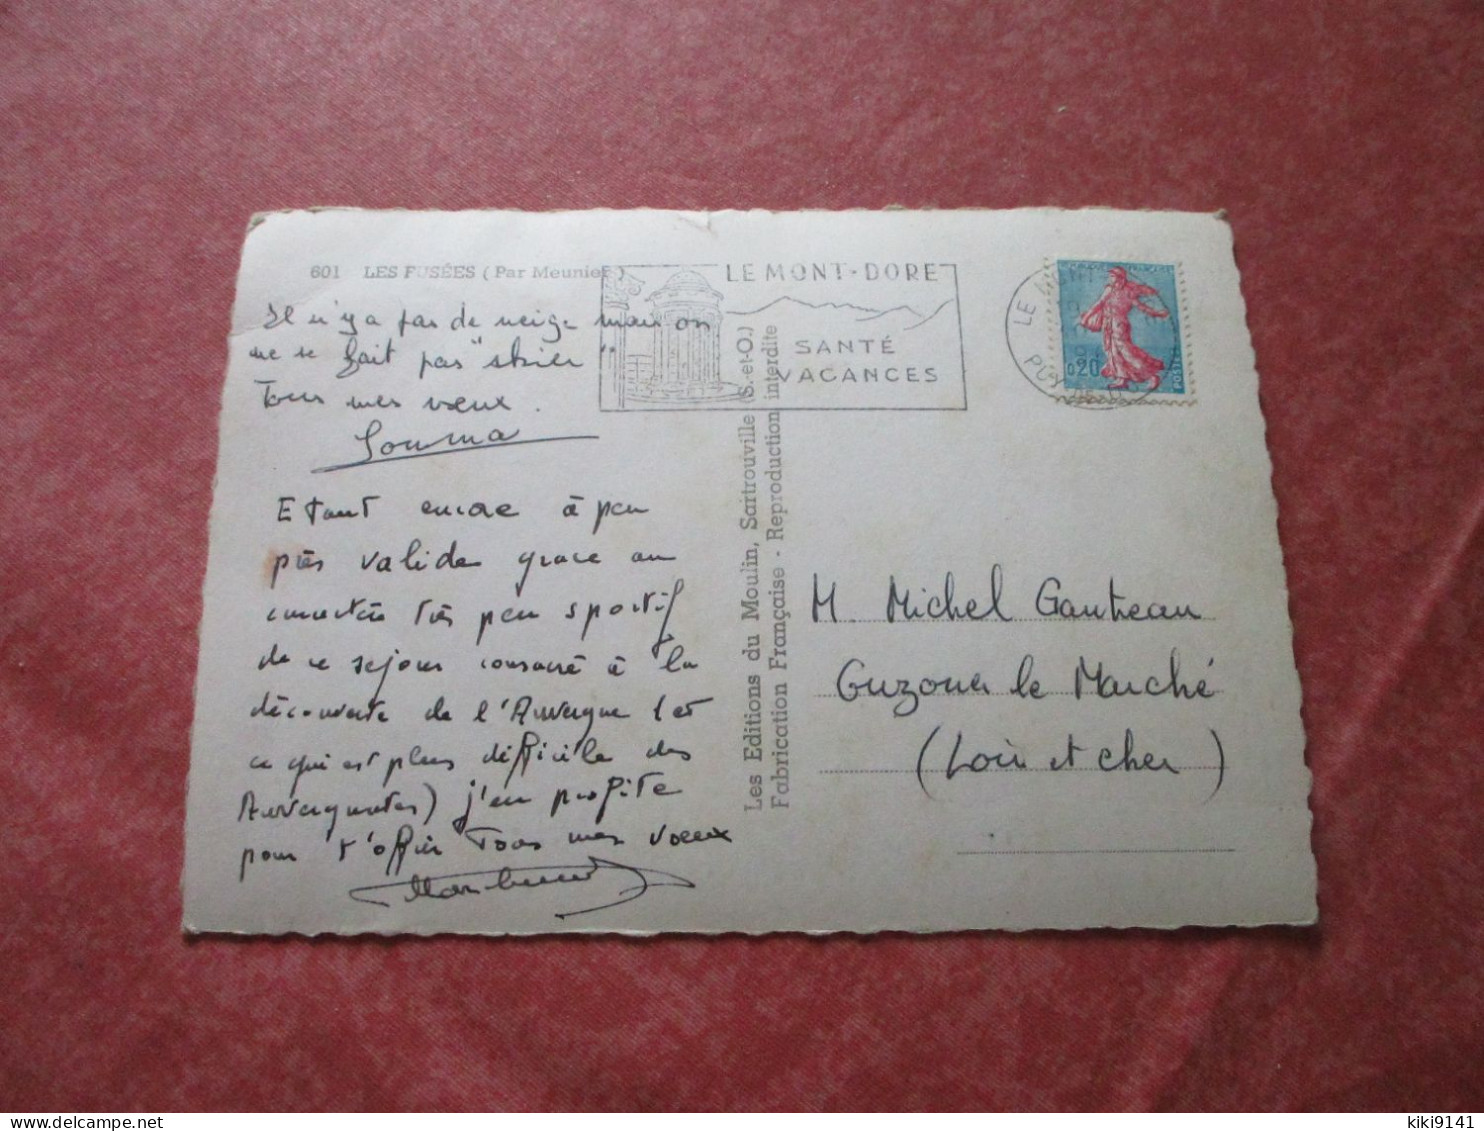 601 LES FUSÉES (Par Meunier)
Il n'y a pas de neige mais on
ne se fait pas "skier"
Tous mes vœux.
Etant encore à peu
près valide grace au
caractère très peu sportif
de ce sejour consacré à la
découverte de l'Auvergne (et
ce qui est plus difficile des
Auvergnates) j'en profite
pour t'offrir Tous mes voeux
LE MONT-DORE
SANTÉ
VACANCES
LE MONT
PUY
0,20
POSTES
Les Editions du Moulin, Sartrouville (S.-et-O.)
Fabrication Française - Reproduction interdite
M. Michel Gautreau
Ouzouer le Marché
(Loir et Cher)
kiki9141